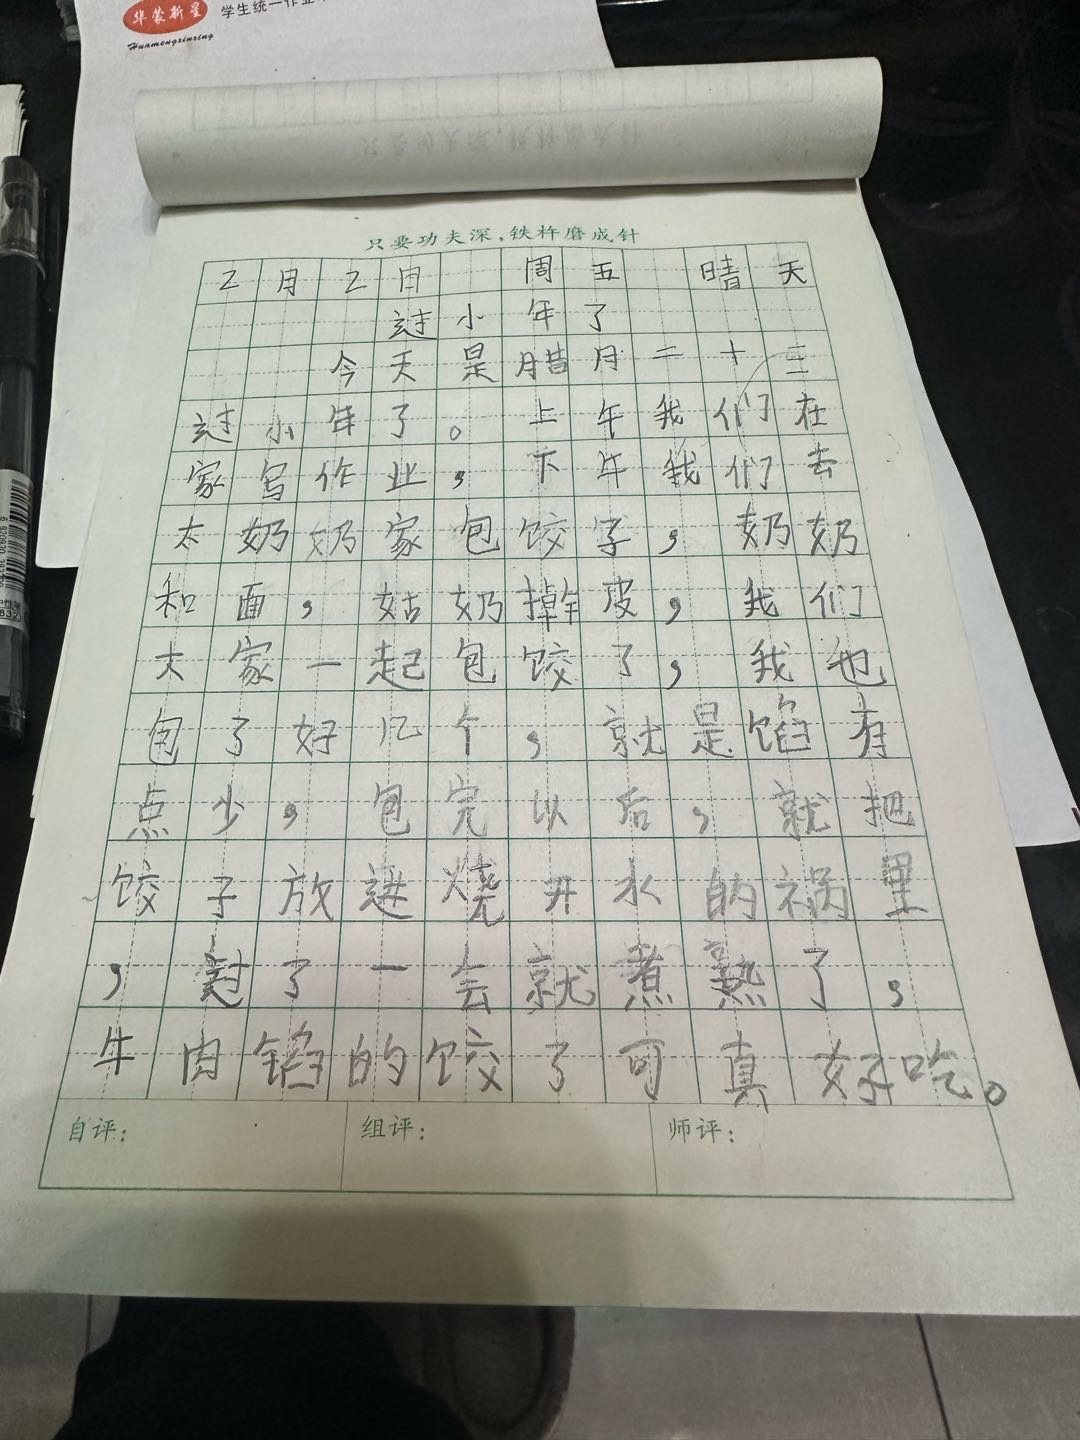 华蒙新星
Huamengxinxing
学生统一作业
只要功夫深,铁杵磨成针
2月2日 周五 晴天
过小年了
今天是腊月二十三
过小年了。上午我们在
家写作业,下午我们去
太奶奶家包饺子,奶奶
和面,姑奶擀皮,我们
大家一起包饺了,我也
包了好几个,就是馅有
点少,包完以后,就把
饺子放进烧开水的祸里
,过了一会就煮熟了,
牛肉馅的饺了可真好吃。
自评:
组评:
师评: